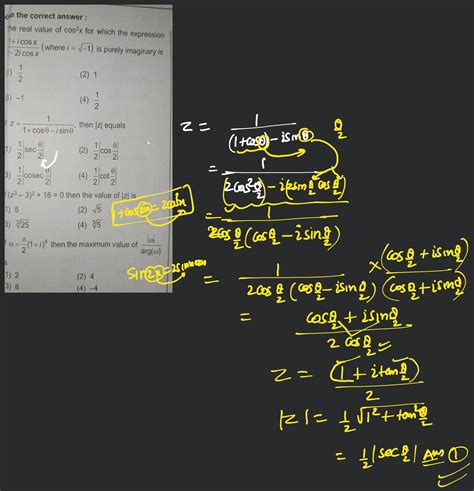 ose the correct answer :
The real value of cos²x for which the expression
1+i cos x / 1-2i cos x (where i = √-1) is purely imaginary is
1) 1/2 (2) 1
3) -1 (4) 1/2
If z = 1 / 1+cosθ-i sinθ, then |z| equals
1) 1/2 |sec θ/2| (2) 1/2 |cos θ/2|
3) 1/2 |cosec θ/2| (4) 1/2 |cot θ/2|
f (z³ – 3)² + 16 = 0 then the value of |z| is
1) 5 (2) √5
3) ∛25 (4) ∛5
ω = π/2 (1+i)⁴ then the maximum of |ω| / arg(ω)
1) 2 (2) 4
3) 8 (4) -4
z = 1 / (1+cosθ) - i sinθ θ/2
= 1 / 2cos²θ/2 - i(2sinθ/2 cosθ/2)
1+cos2x = 2cos²x
= 1 / 2cosθ/2 (cosθ/2 - i sinθ/2)
sin2x = 2sinxcosx
= 1 / 2cosθ/2 (cosθ/2 - i sinθ/2) × (cosθ/2 + i sinθ/2) / (cosθ/2 + i sinθ/2)
= cosθ/2 + i sinθ/2 / 2cosθ/2
z = (1 + i tanθ/2) / 2
|z| = 1/2 √1² + tan²θ/2
= 1/2 |secθ/2| Ans (1)